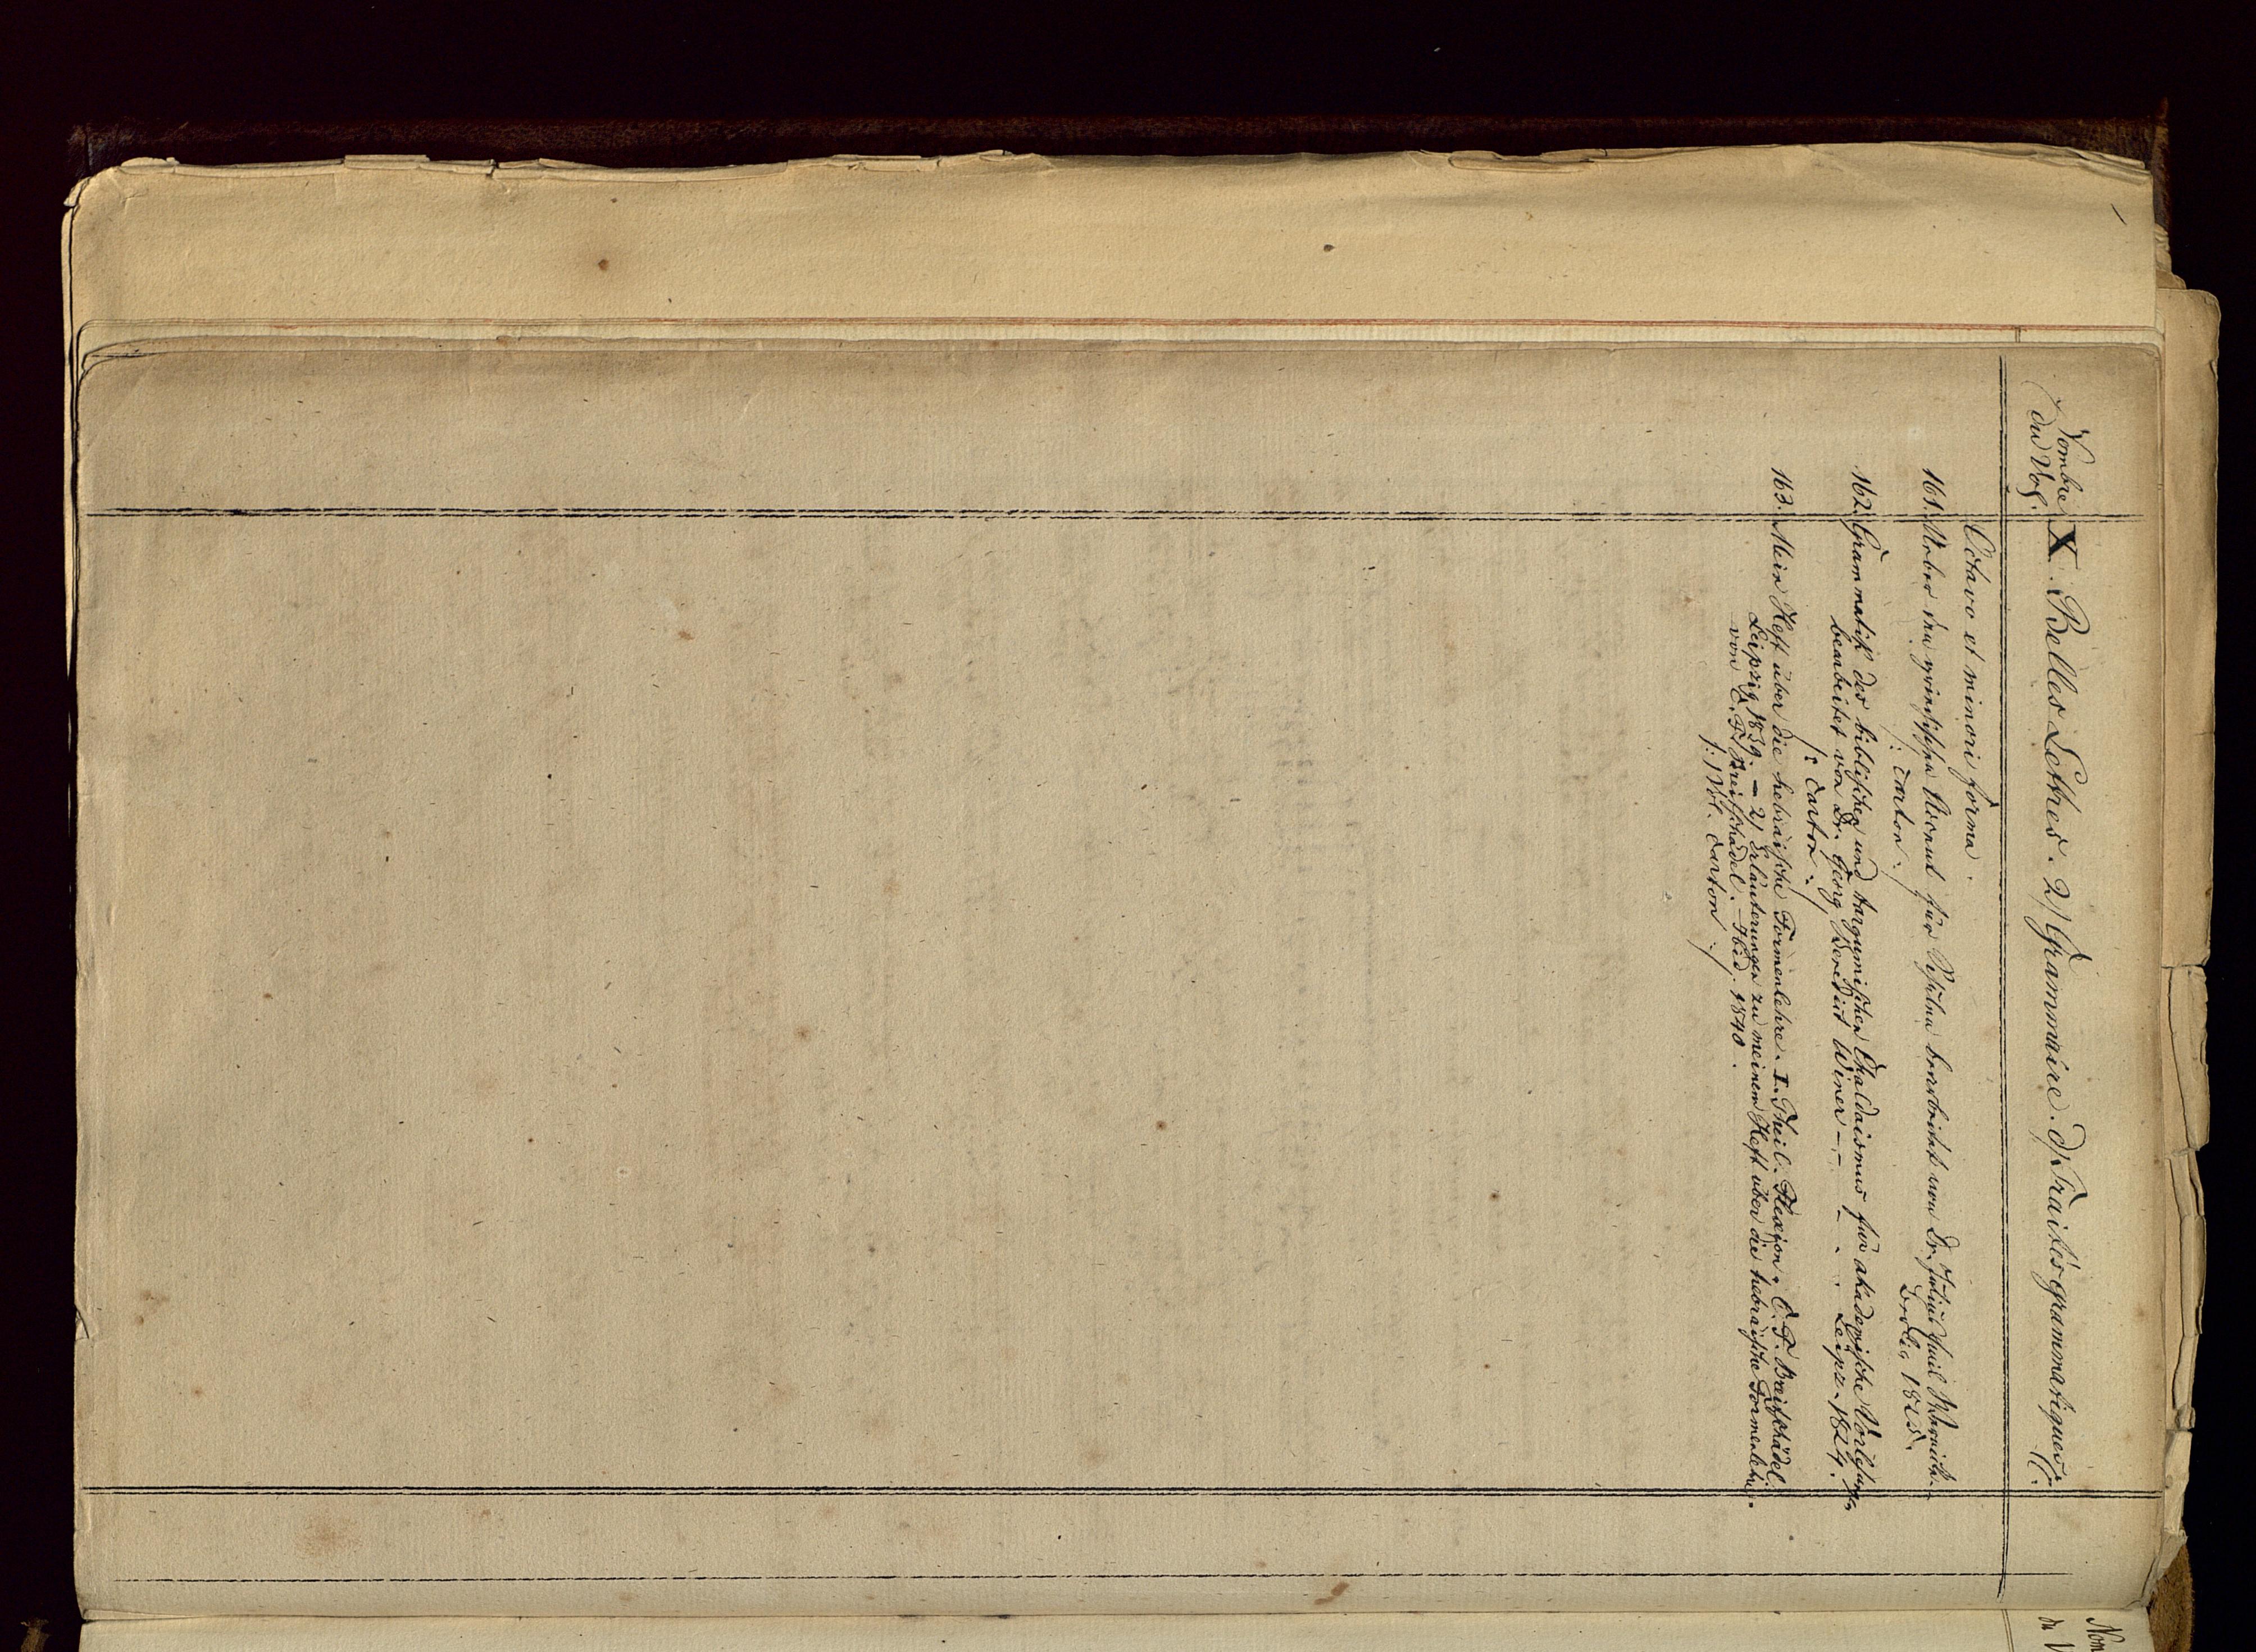 Nombre
du Vol.
X. Belles Lettres. 2) Grammaire. d) Traités grammatiques
Octavo et minori forma.
161. Ueber den griechischen Accent für Schulen bearbeitet von Dr. Julius Emil
Berlin 1825.
/: carton :/
162. Grammatik des biblischen und targumischen Chaldaismus für akademische Vorlesungen
bearbeitet von Dr. Georg Benedict Winer - - - - Leipz. 1824.
/: carton :/
163. Mein Heft über die hebräische Formenlehre. I. Theil. Flexion. C. F. Breisschädel.
Leipzig 1839. - 2) Erläuterungen zu meinem Heft über die hebräische Formenlehre.
von C. F. Breisschädel. - Ibid. 1840.
/: 1 Vol. carton :/
Nom
du V